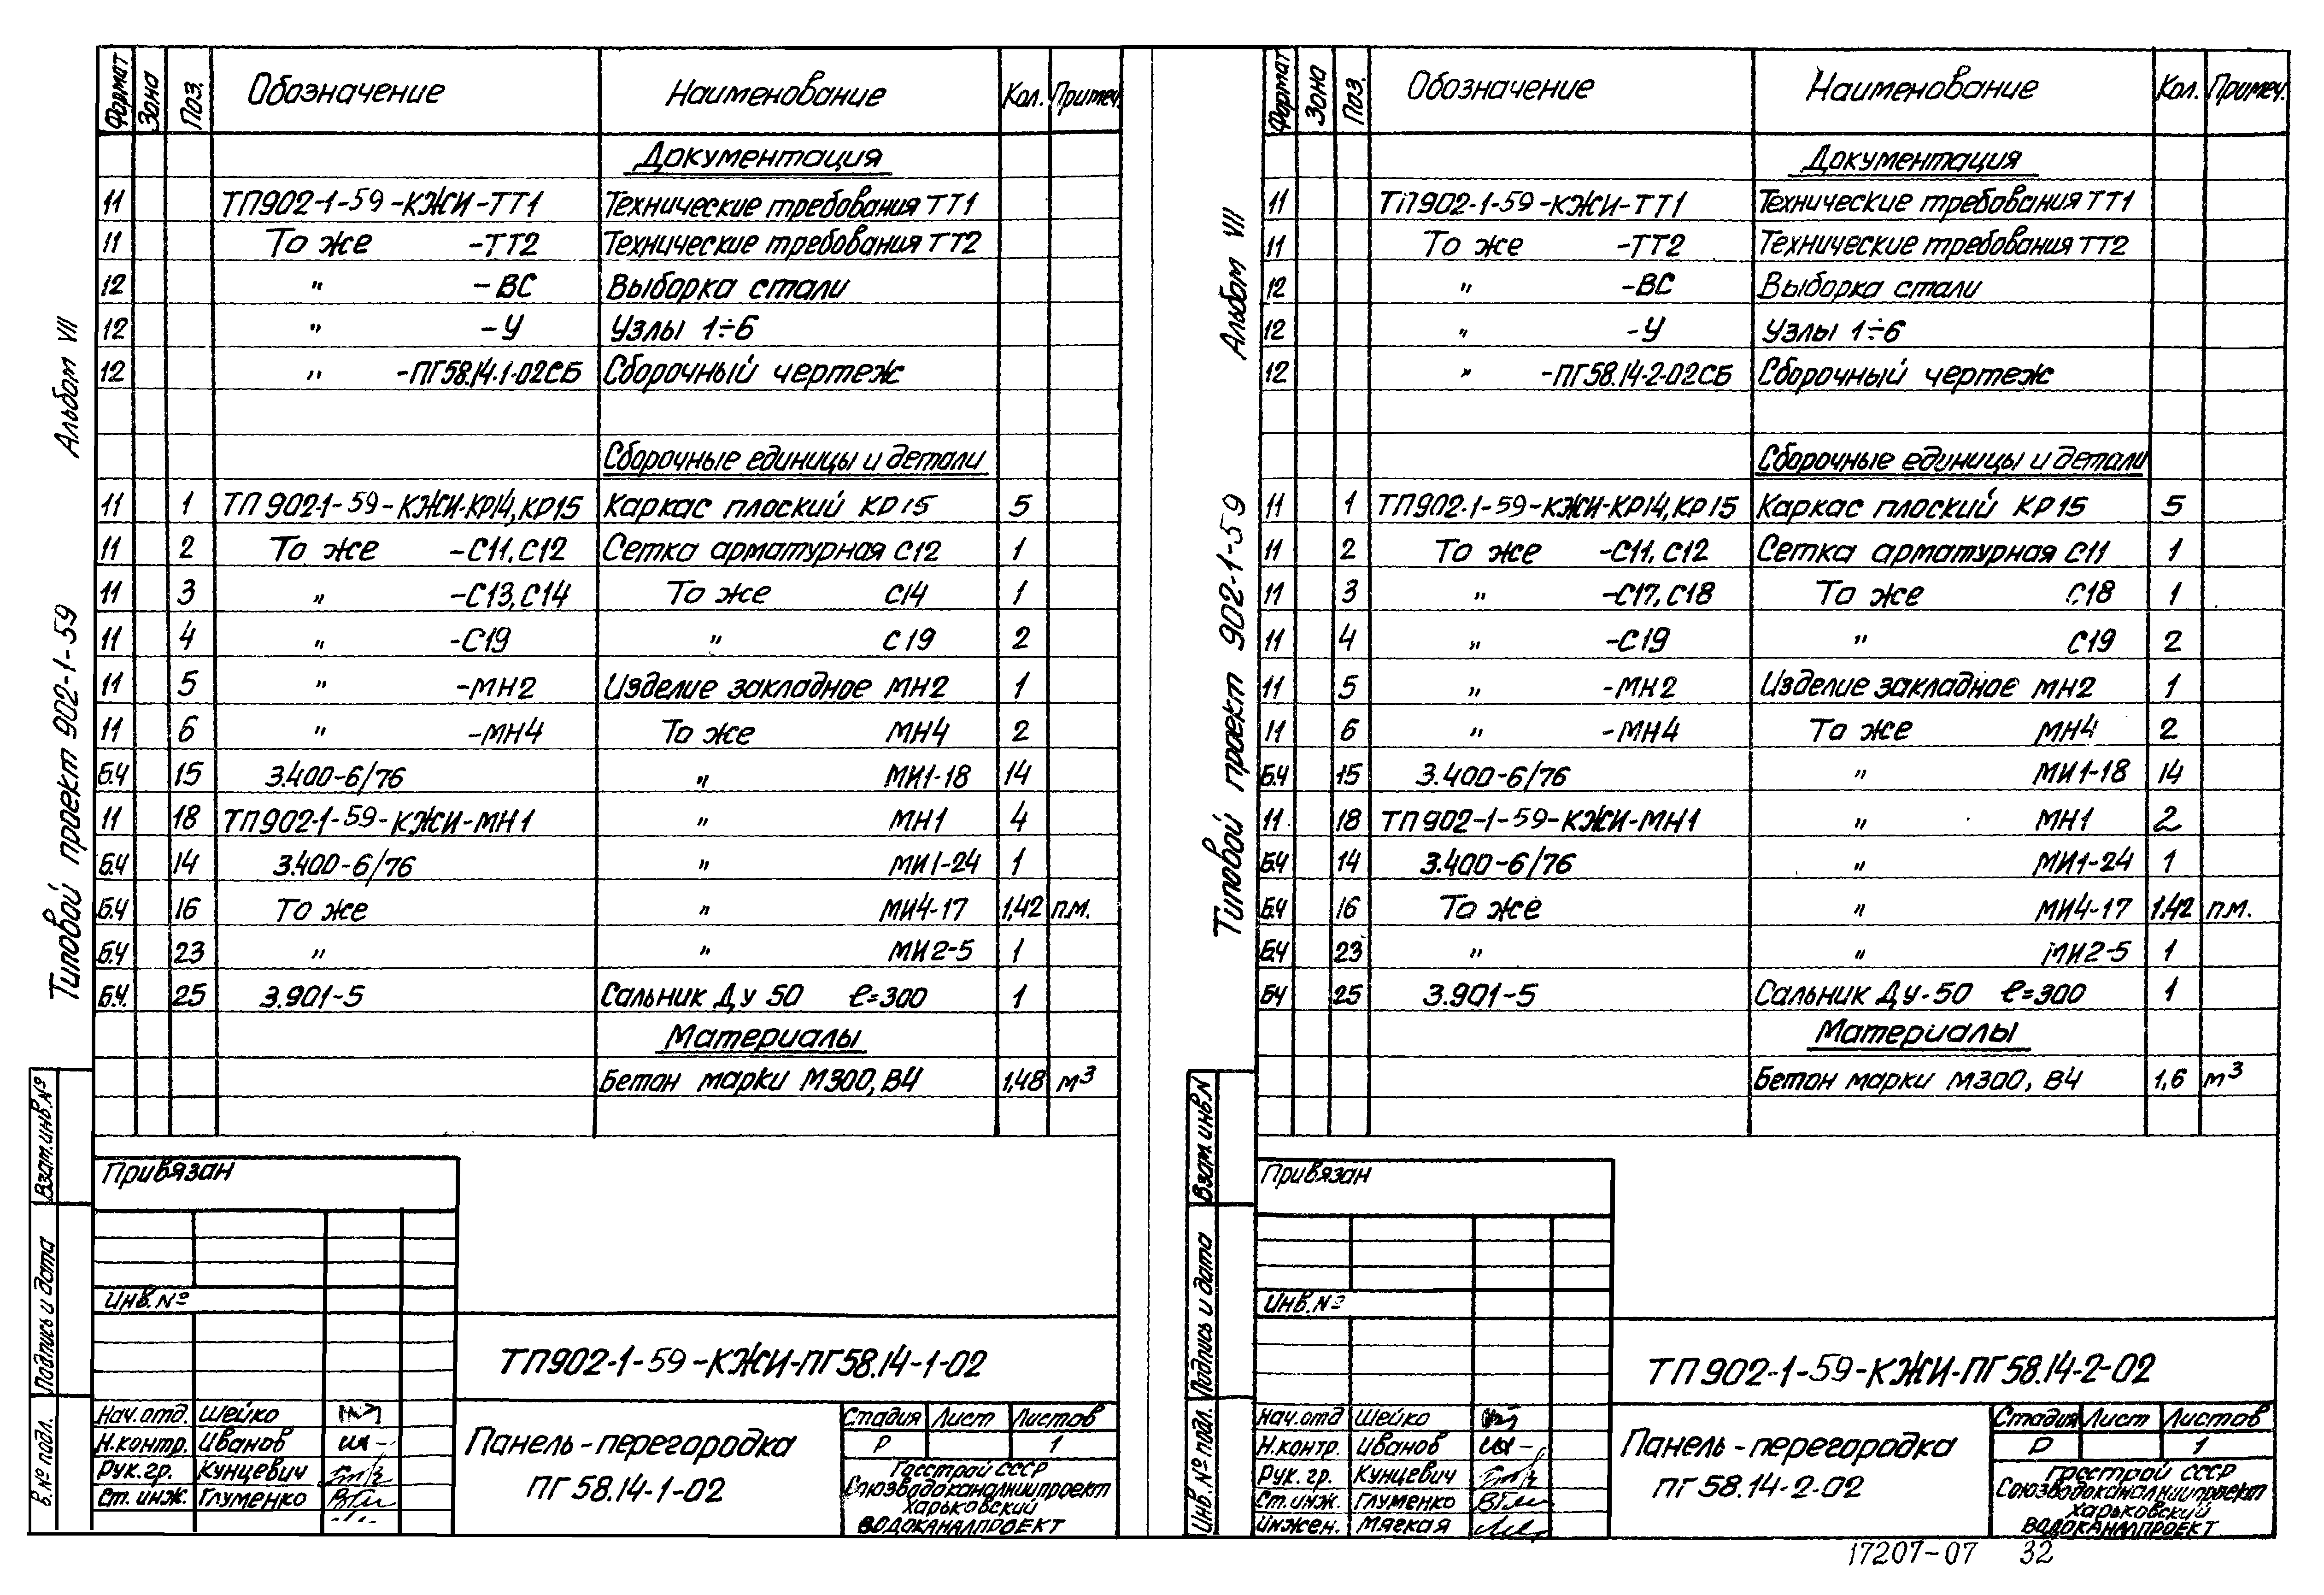 Формат Зона Поз. Обозначение Наименование Кол. Примеч.
Документация
11 ТП902-1-59-КЖИ-ТТ1 Технические требования ТТ1
11 То же -ТТ2 Технические требования ТТ2
12 " -ВС Выборка стали
12 " -У Узлы 1÷6
12 " -ПГ58.14.1-02СБ Сборочный чертеж
Сборочные единицы и детали
11 1 ТП902-1-59-КЖИ-КР14,КР15 Каркас плоский КР15 5
11 2 То же -С11,С12 Сетка арматурная С12 1
11 3 " -С13,С14 То же С14 1
11 4 " -С19 " С19 2
11 5 " -МН2 Изделие закладное МН2 1
11 6 " -МН4 То же МН4 2
Б.Ч 15 3.400-6/76 " МИ1-18 14
11 18 ТП902-1-59-КЖИ-МН1 " МН1 4
Б.Ч 14 3.400-6/76 " МИ1-24 1
Б.Ч 16 То же " МИ4-17 1,42 п.м.
Б.Ч 23 " " МИ2-5 1
Б.Ч. 25 3.901-5 Сальник Ду 50 ℓ=300 1
Материалы
Бетон марки М300, В4 1,48 м³
Альбом VII
Типовой проект 902-1-59
Взам.инв.№
Подпись и дата
в.№ подл.
Привязан
Инв.№
ТП902-1-59-КЖИ-ПГ58.14-1-02
Нач.отд. Шейко
Н.контр. Иванов
Рук.гр. Кунцевич
Ст. инж. Глуменко
Панель-перегородка
ПГ 58.14-1-02
Стадия Лист Листов
Р 1
Госстрой СССР
Союзводоканалниипроект
Харьковский
ВОДОКАНАЛПРОЕКТ
Формат Зона Поз. Обозначение Наименование Кол. Примеч.
Документация
11 ТП902-1-59-КЖИ-ТТ1 Технические требования ТТ1
11 То же -ТТ2 Технические требования ТТ2
12 " -ВС Выборка стали
12 " -У Узлы 1÷6
12 " -ПГ58.14-2-02СБ Сборочный чертеж
Сборочные единицы и детали
11 1 ТП902-1-59-КЖИ-КР14,КР15 Каркас плоский КР15 5
11 2 То же -С11,С12 Сетка арматурная С11 1
11 3 " -С17,С18 То же С18 1
11 4 " -С19 " С19 2
11 5 " -МН2 Изделие закладное МН2 1
11 6 " -МН4 То же МН4 2
Б.Ч 15 3.400-6/76 " МИ1-18 14
11 18 ТП902-1-59-КЖИ-МН1 " МН1 2
Б.Ч 14 3.400-6/76 " МИ1-24 1
Б.Ч 16 То же " МИ4-17 1.42 п.м.
Б.Ч 23 " " МИ2-5 1
БЧ 25 3.901-5 Сальник Ду-50 ℓ=300 1
Материалы
Бетон марки М300, В4 1,6 м³
Альбом VII
Типовой проект 902-1-59
Взам.инв.N
Подпись и дата
Инв.№ подл.
Привязан
Инв.№
ТП902-1-59-КЖИ-ПГ58.14-2-02
Нач.отд Шейко
Н.контр. Иванов
Рук. гр. Кунцевич
Ст.инж. Глуменко
Инжен. Мягкая
Панель-перегородка
ПГ 58.14-2-02
Стадия Лист Листов
Р 1
Госстрой СССР
Союзводоканалниипроект
Харьковский
ВОДОКАНАЛПРОЕКТ
17207-07 32